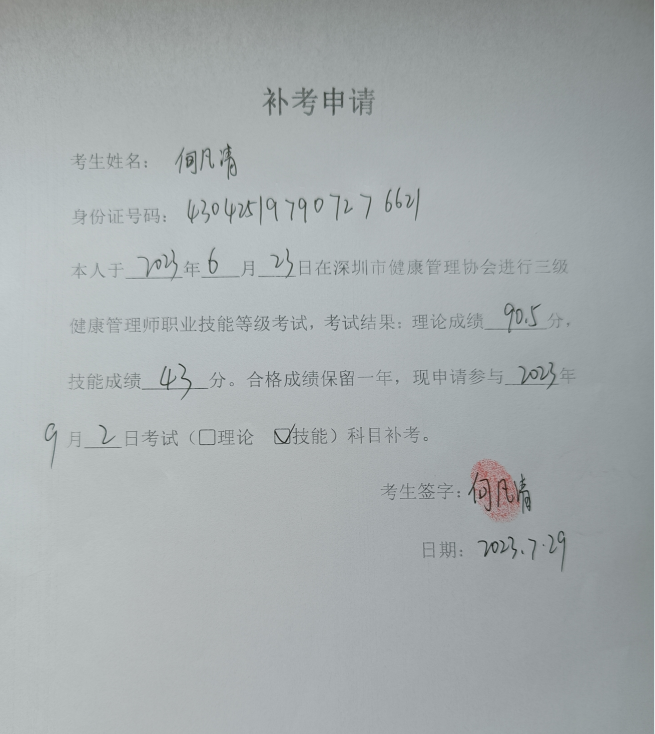 补考申请
考生姓名：何凡清
身份证号码：430425197907276621
本人于2023年6月23日在深圳市健康管理协会进行三级
健康管理师职业技能等级考试，考试结果：理论成绩90.5分，
技能成绩43分。合格成绩保留一年，现申请参与2023年
9月2日考试（☐理论 ☑技能）科目补考。
考生签字：何凡清
日期：2023.7.29